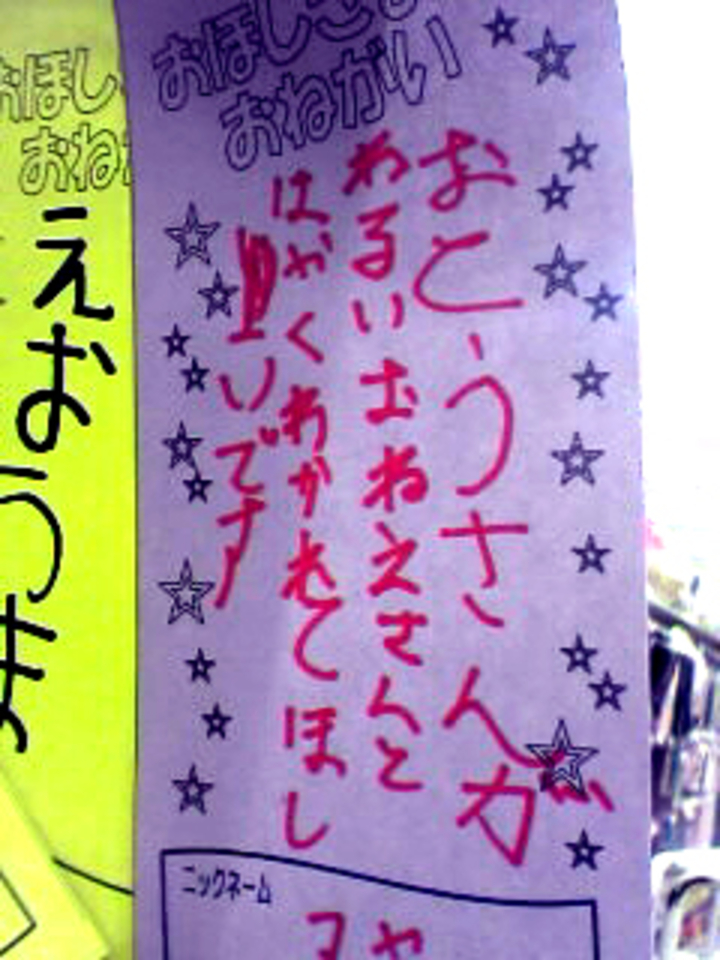 おほしさま
おねがい
おとうさんが
わるいおねえさんと
はやくわかれてほし
いです
ニックネーム
おほし
おね
えおうま